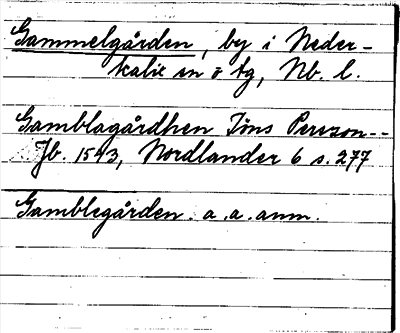 Gammelgården, by i Neder-
kalix sn o tg, Nb. l.
Gamblagårdhen Jöns Perszon--
Jb. 1543, Nordlander 6 s. 277
Gamblegården. a. a. anm.